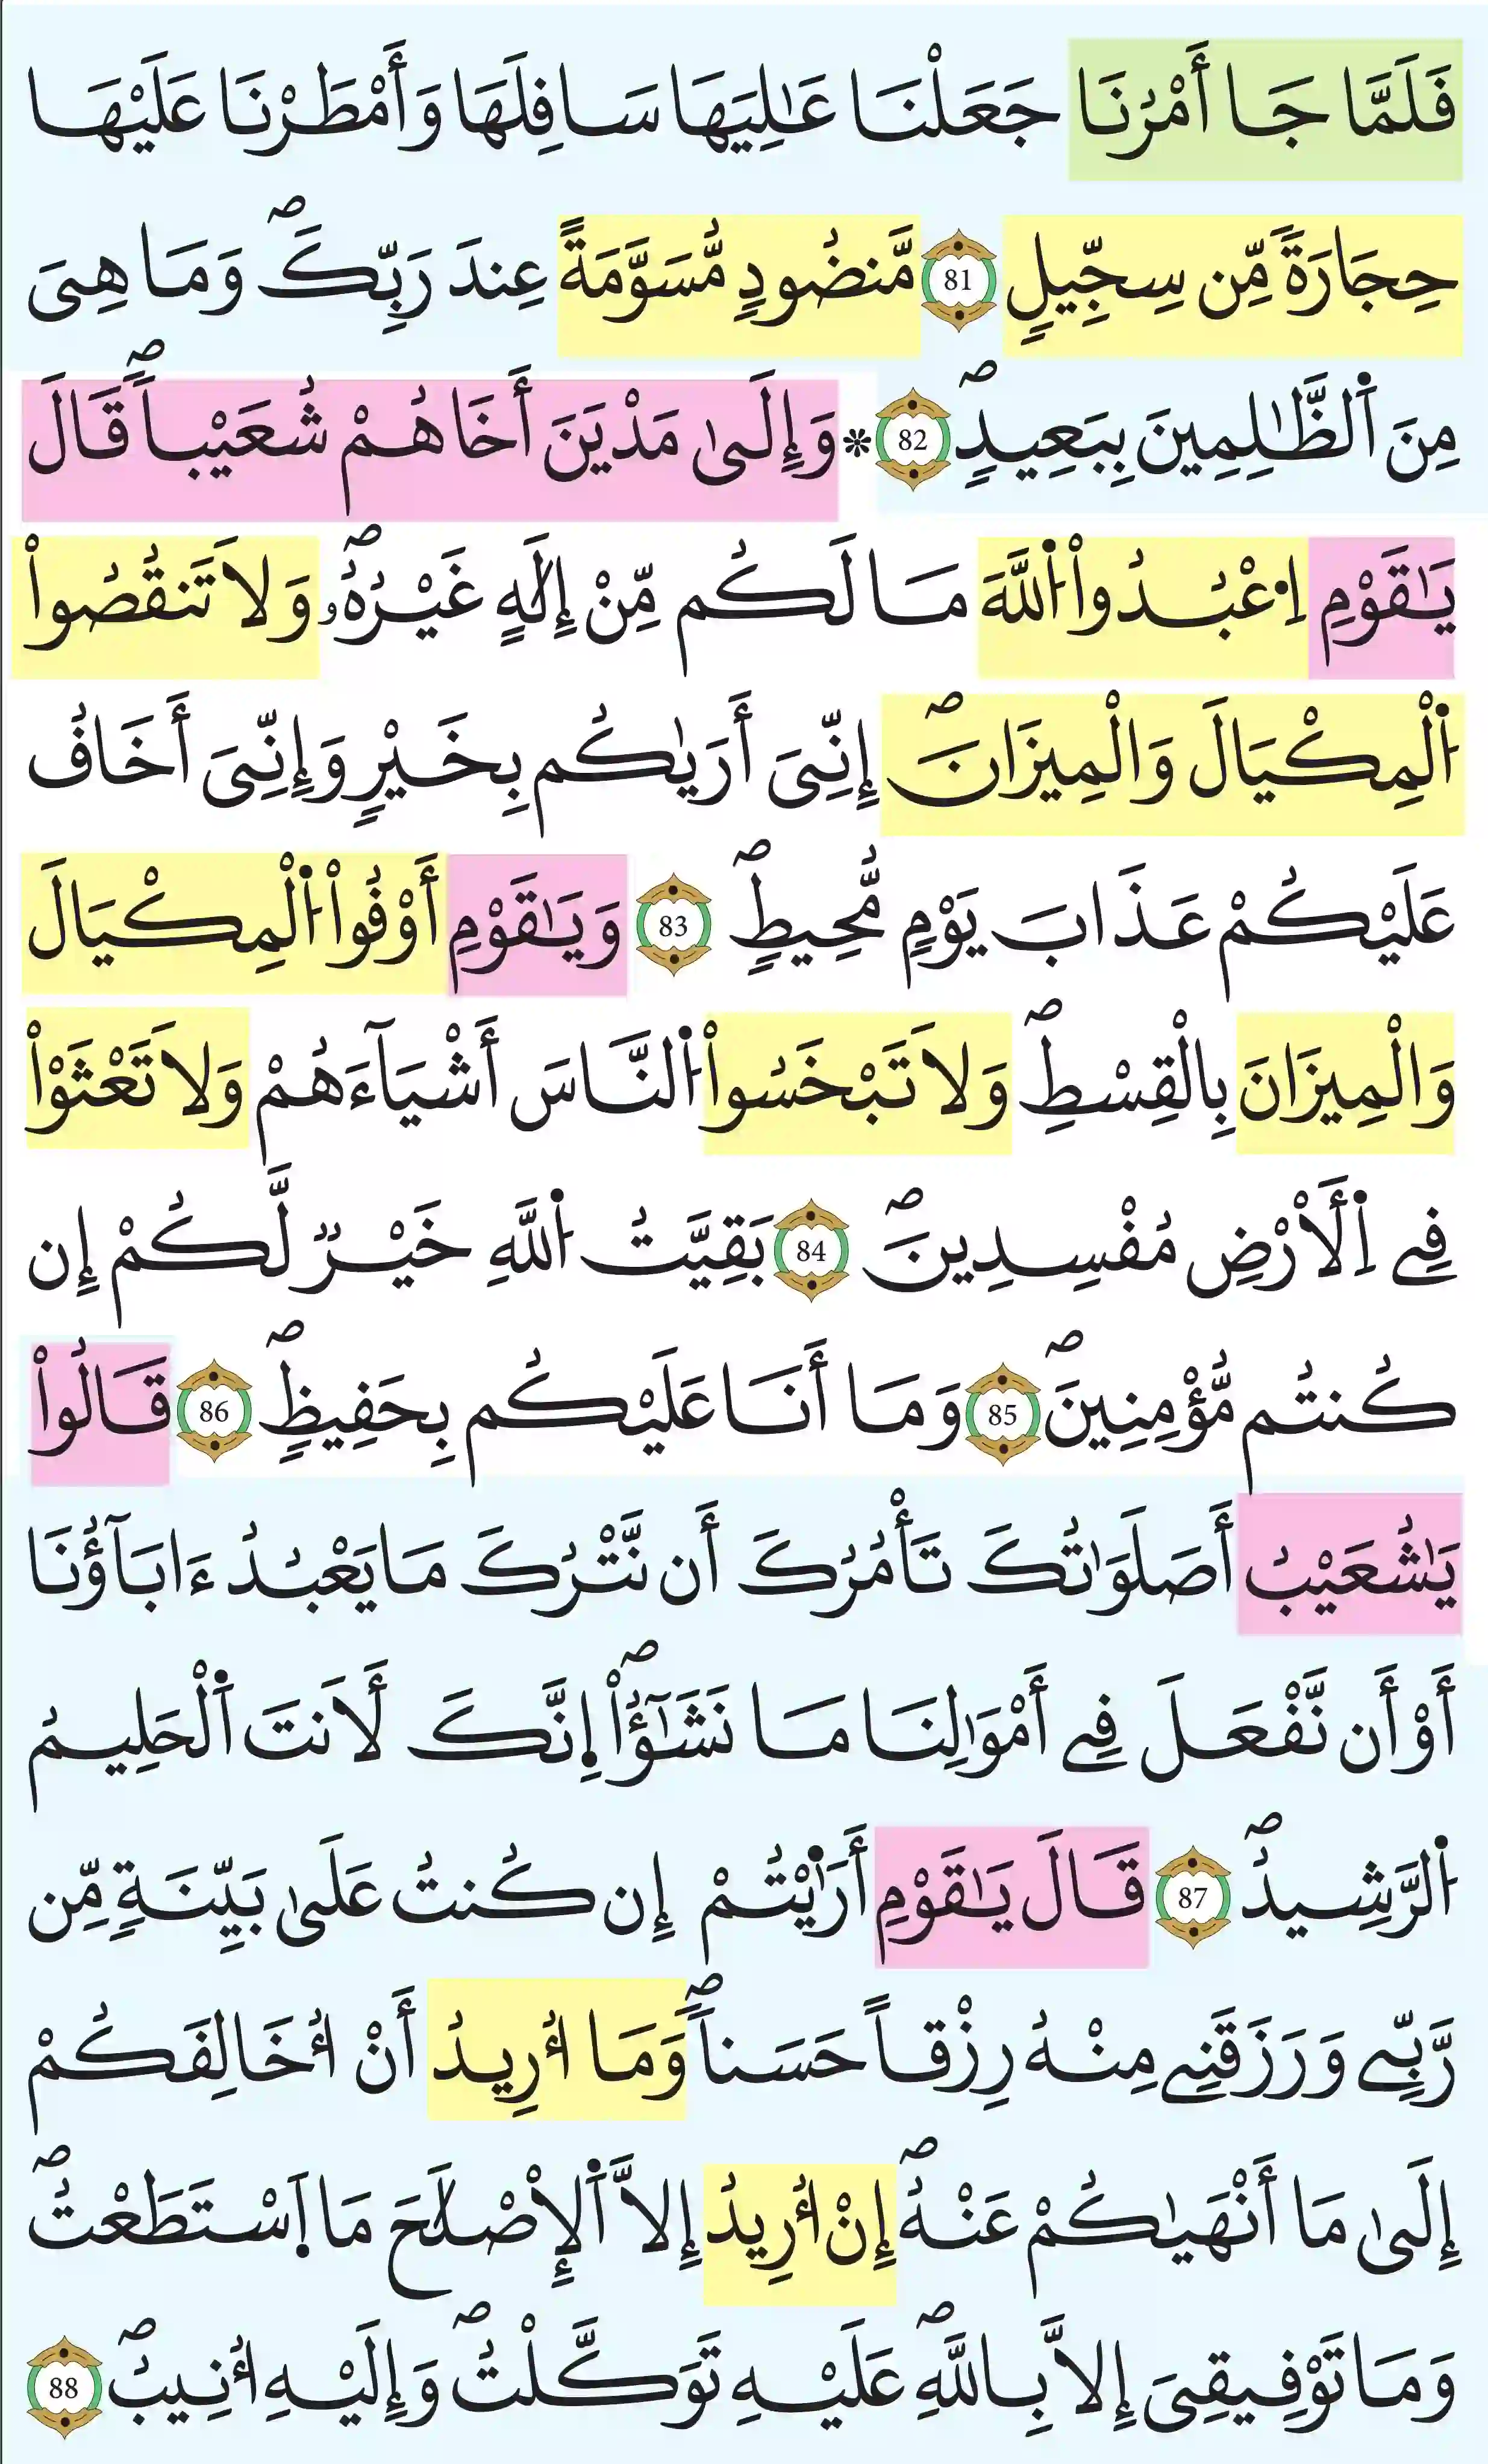 فَلَمَّا جَا أَمْرُنَا جَعَلْنَا عَٰلِيَهَا سَافِلَهَا وَأَمْطَرْنَا عَلَيْهَا
حِجَارَةً مِّن سِجِّيلٍ 81 مَّنضُودٍ مُّسَوَّمَةً عِندَ رَبِّكَۖ وَمَا هِىَ
مِنَ اَ۬لظَّٰلِمِينَ بِبَعِيدٍۖ 82 * وَإِلَىٰ مَدْيَنَ أَخَاهُمْ شُعَيْباٗۖ قَالَ
يَٰقَوْمِ اِ۟عْبُدُواْ اُ۬للَّهَ مَا لَكُم مِّنْ إِلَٰهٍ غَيْرُهُۥۖ وَلَا تَنقُصُواْ
اُ۬لْمِكْيَالَ وَالْمِيزَانَۖ إِنِّىَ أَرَىٰكُم بِخَيْرٍ وَإِنِّىَ أَخَافُ
عَلَيْكُمْ عَذَابَ يَوْمٍ مُّحِيطٍۖ 83 وَيَٰقَوْمِ أَوْفُواْ اُ۬لْمِكْيَالَ
وَالْمِيزَانَ بِالْقِسْطِۖ وَلَا تَبْخَسُواْ اُ۬لنَّاسَ أَشْيَآءَهُمْ وَلَا تَعْثَوْاْ
فِے اِ۬لَأرْضِ مُفْسِدِينَۖ 84 بَقِيَّتُ اُ۬للَّهِ خَيْرٞ لَّكُمْ إِن
كُنتُم مُّؤْمِنِينَۖ 85 وَمَا أَنَا عَلَيْكُم بِحَفِيظٍۖ 86 قَالُواْ
يَٰشُعَيْبُ أَصَلَوَٰتُكَ تَأْمُرُكَ أَن نَّتْرُكَ مَا يَعْبُدُ ءَابَآؤُنَا
أَوْ أَن نَّفْعَلَ فِے أَمْوَٰلِنَا مَا نَشَٰٓؤُاْۖ اِ۪نَّكَ لَأَنتَ اَ۬لْحَلِيمُ
اُ۬لرَّشِيدُۖ 87 قَالَ يَٰقَوْمِ أَرَٰ۬يْتُمْ إِن كُنتُ عَلَىٰ بَيِّنَةٍ مِّن
رَّبِّے وَرَزَقَنِے مِنْهُ رِزْقاً حَسَناٗۖ وَمَا أُرِيدُ أَنْ أُخَالِفَكُمْ
إِلَىٰ مَا أَنْهَىٰكُمْ عَنْهُۖ إِنْ أُرِيدُ إِلَّا اَ۬لْإِصْلَٰحَ مَا اَ۪سْتَطَعْتُۖ
وَمَا تَوْفِيقِىَ إِلَّا بِاللَّهِۖ عَلَيْهِ تَوَكَّلْتُۖ وَإِلَيْهِ أُنِيبُۖ 88